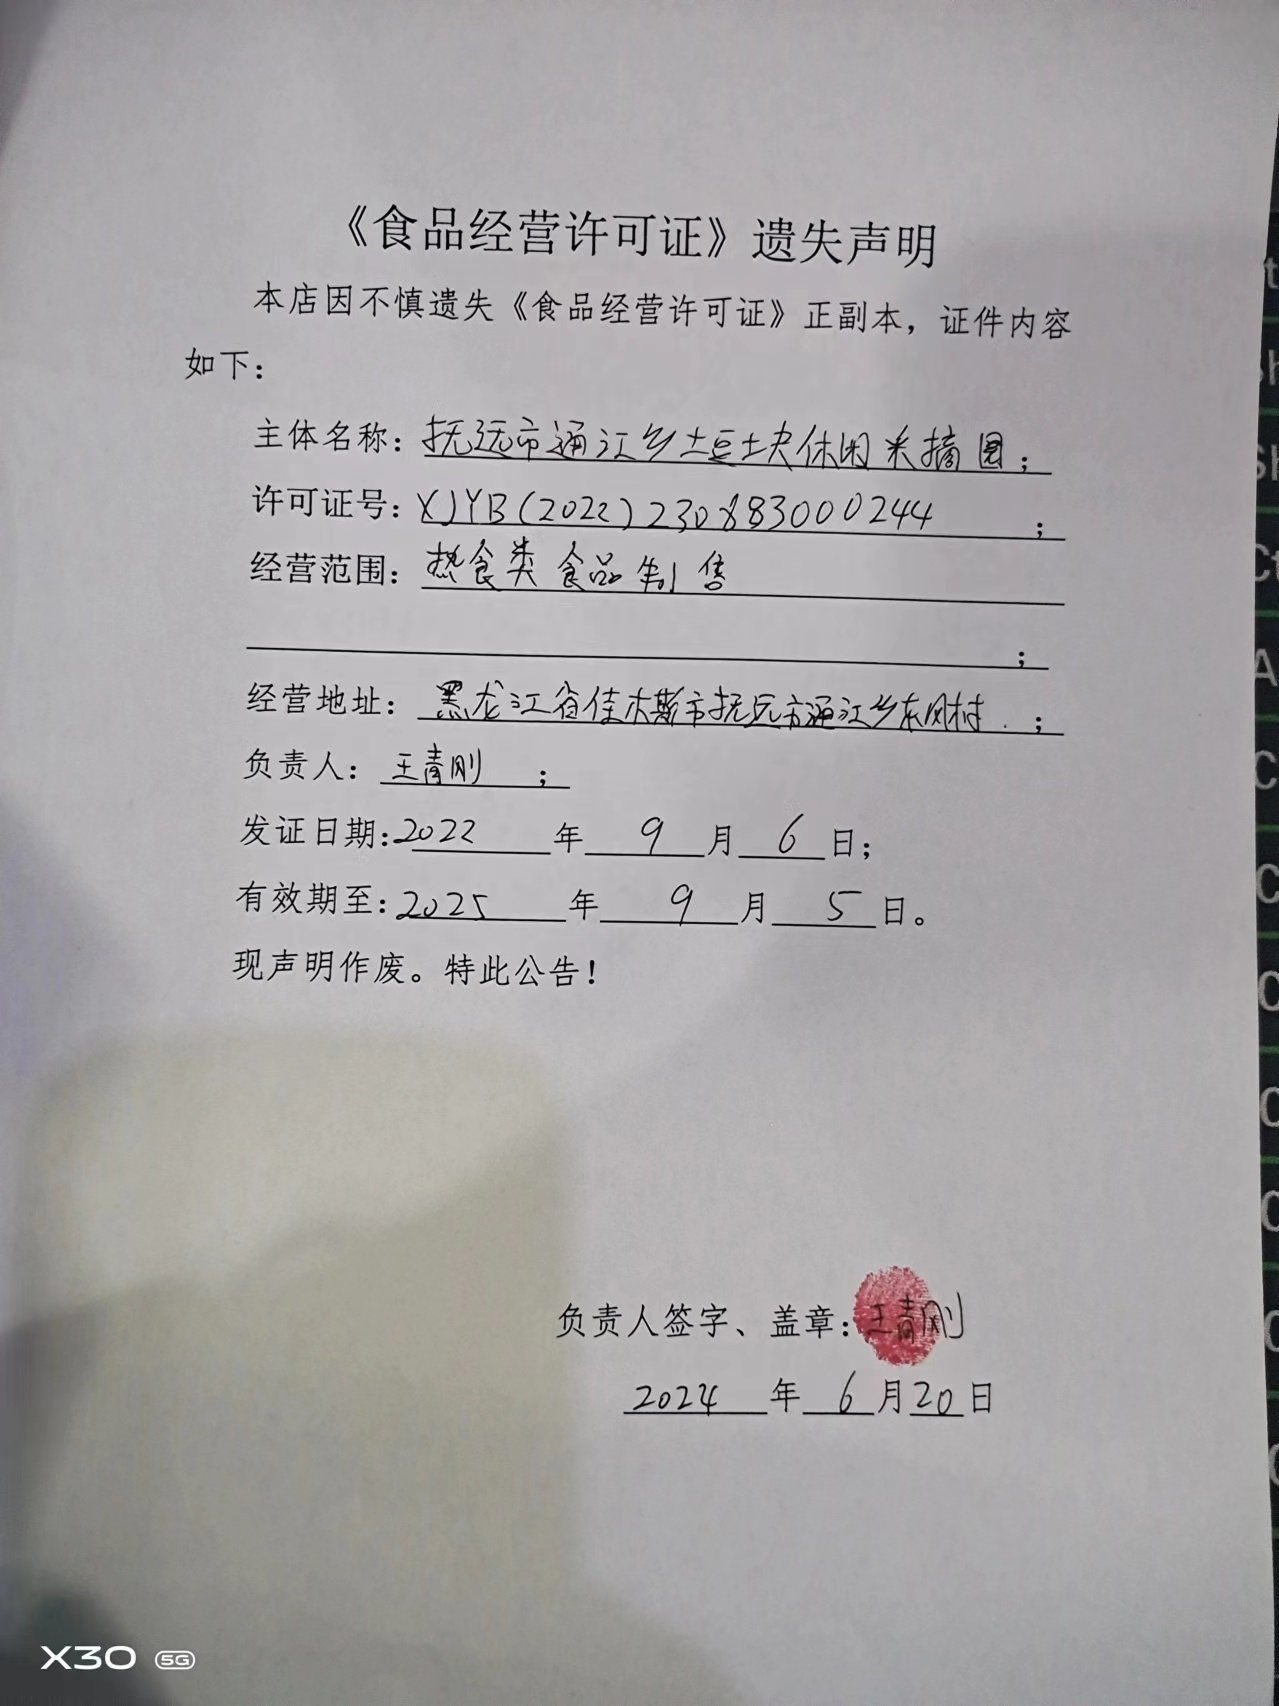 《食品经营许可证》遗失声明
本店因不慎遗失《食品经营许可证》正副本，证件内容
如下：
主体名称：抚远市通江乡土豆土夫休闲采摘园；
许可证号：XJYB(2022)230883000244；
经营范围：热食类食品制售
；
经营地址：黑龙江省佳木斯市抚远市通江乡东风村.；
负责人：王青刚；
发证日期：2022年9月6日；
有效期至：2025年9月5日。
现声明作废。特此公告！
负责人签字、盖章：王青刚
2024年6月20日
X30 5G